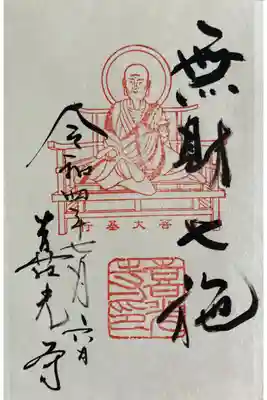 無財七施
行基大菩
令和四年七月六日
喜光寺